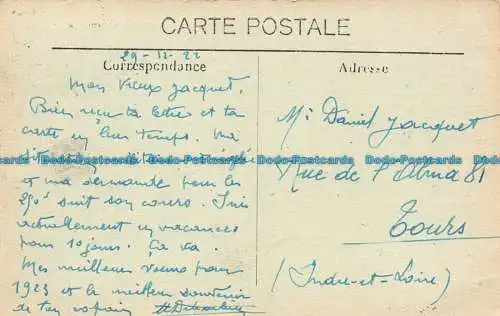 CARTE POSTALE
29-12-22
Correspondance
Mon vieux Jacquet,
Bien reçu ta lettre et ta
carte en leur temps. Ma
et ma demande pour les
suit son cours. Suis
actuellement en vacances
pour 10 jours. Ça va.
Mes meilleurs vœux pour
1923 et le meilleur souvenir
de ton copain
Adresse
Mr Daniel Jacquet
Rue de l'Alma 81
Tours
(Indre-et-Loire)
Dodo-Postcards Dodo-Postcards Dodo-Postcards Dodo-Postcards Dodo-Postcards